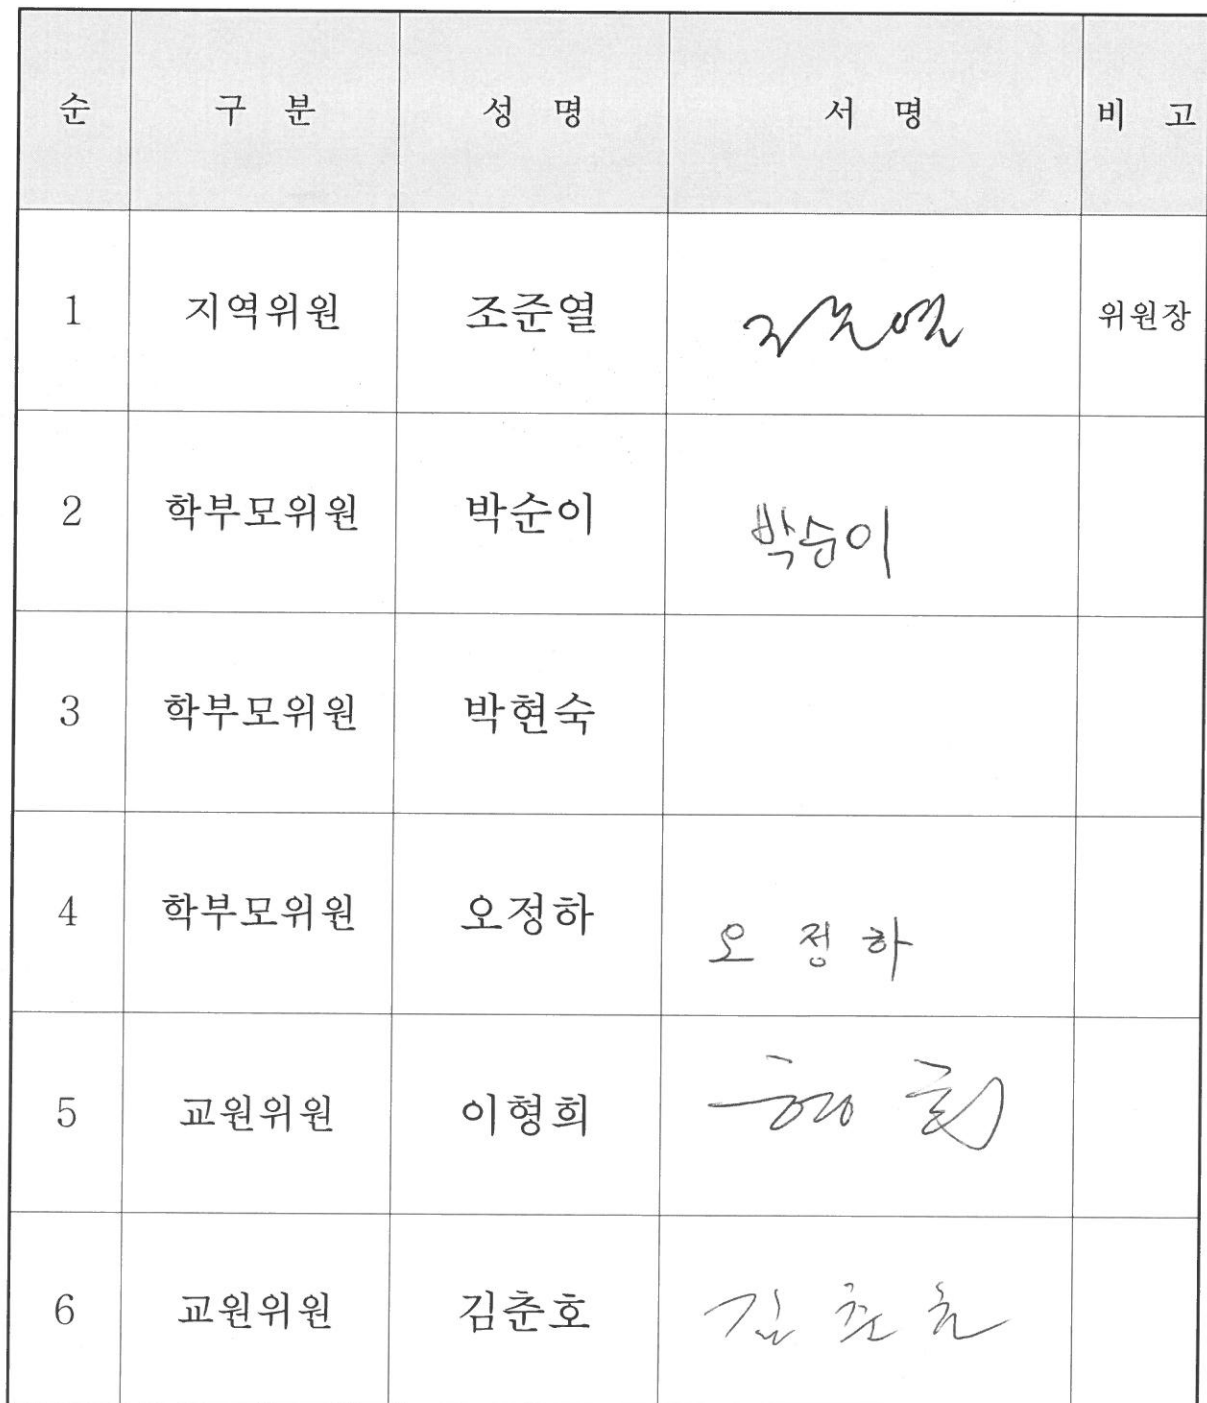 순 구 분 성 명 서 명 비 고
1 지역위원 조준열 조준열 위원장
2 학부모위원 박순이 박순이
3 학부모위원 박현숙
4 학부모위원 오정하 오정하
5 교원위원 이형희
6 교원위원 김춘호 김춘호